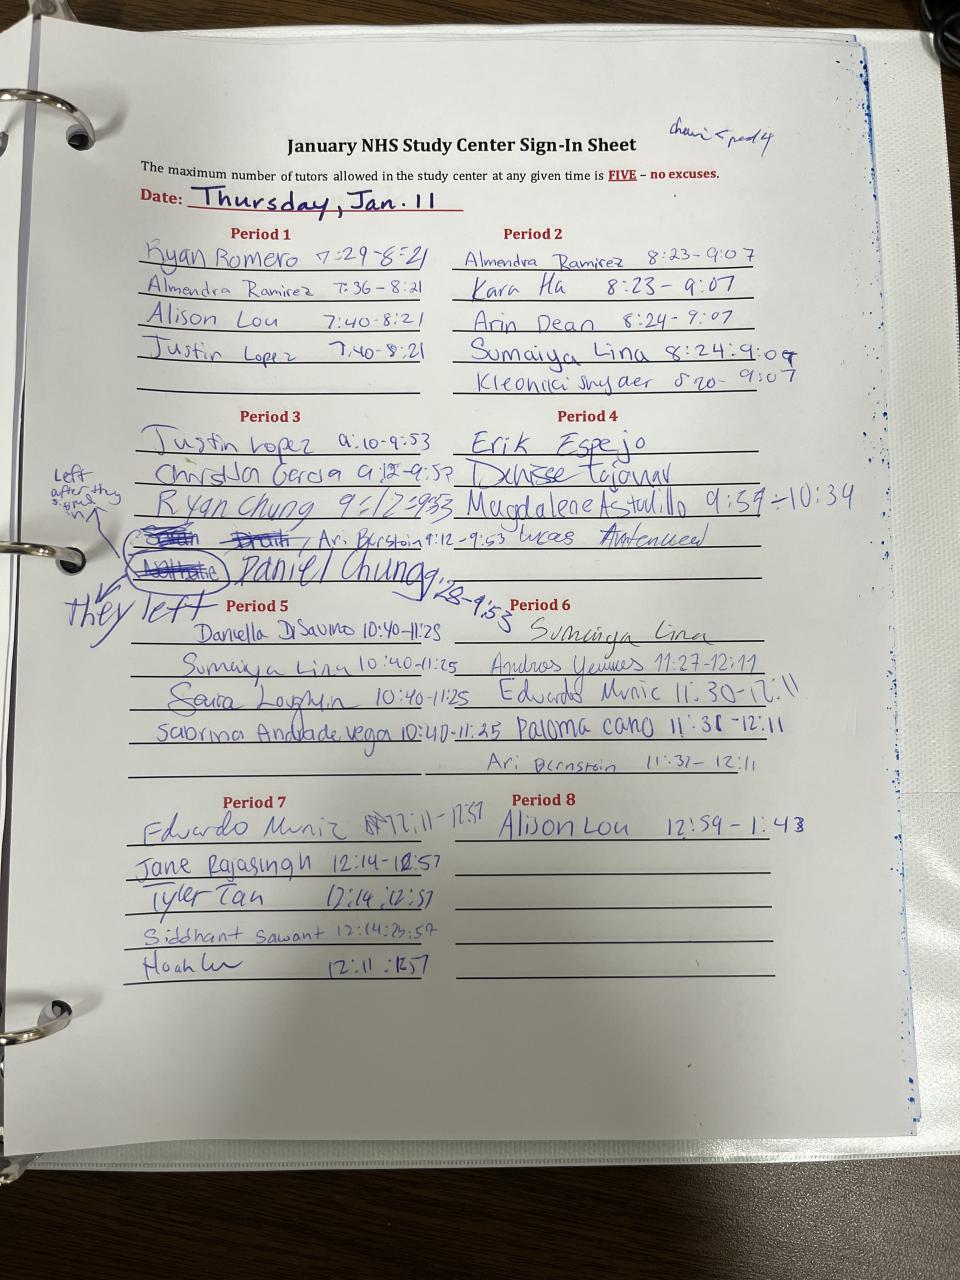 January NHS Study Center Sign-In Sheet
The maximum number of tutors allowed in the study center at any given time is FIVE – no excuses.
Date: Thursday, Jan. 11
Period 1
Ryan Romero 7:29-8:21
Almendra Ramirez 7:36-8:21
Alison Lou 7:40-8:21
Justin Lopez 7:40-8:21
Period 2
Almendra Ramirez 8:23-9:07
Kara Ha 8:23-9:07
Arin Dean 8:24-9:07
Sumaiya Lina 8:24-9:07
Kleoniki Snyder 9:07
Period 3
Justin Lopez 9:10-9:53
Garcia 9:12-9:53
Ryan Chung 9:12-9:53
Ari Bernstein 9:12-9:53
Daniel Chung 9:28-9:53
Left after they signed in
they left
Period 4
Erik Espejo
Denisse
Magdalene Astudillo 9:59-10:34
Lucas
Period 5
Daniella DiSavino 10:40-11:25
Sumaiya Lina 10:40-11:25
Loughlin 10:40-11:25
Sabrina Andrade vega 10:40-11:25
Period 6
Sumaiya Lina
Andres 11:27-12:11
Eduardo Muniz 11:30-12:11
Paloma cano 11:31-12:11
Ari Bernstein 11:32-12:11
Period 7
Eduardo Muniz 12:11-12:57
Jane Rajasingh 12:14-12:57
Tyler Tan 12:14-12:57
Siddhant Sawant 12:14
12:11-12:57
Period 8
Alison Lou 12:59-1:43